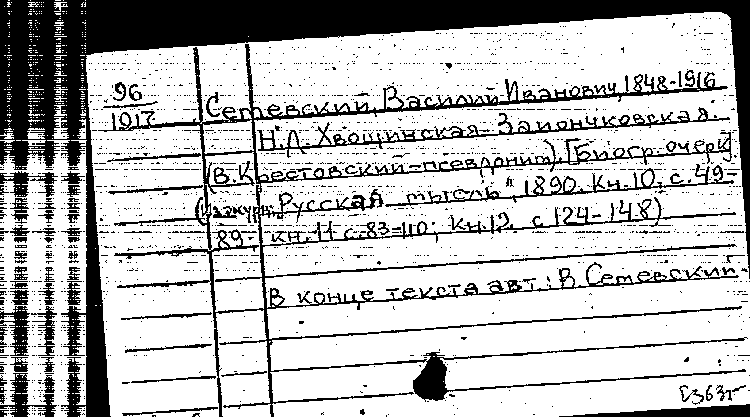 96
1917
Сетевский, Василий Иванович, 1848-1916
Н.Д. Хвощинская-Заиончковская
(В. Крестовский-псевдоним). [Биогр. очерк]
(Из журн. „Русская мысль", 1890. Кн. 10, с. 49-
89; кн. 11 с. 83-110; Кн. 12, с 124-148)
В конце текста авт.: В Сетевский.